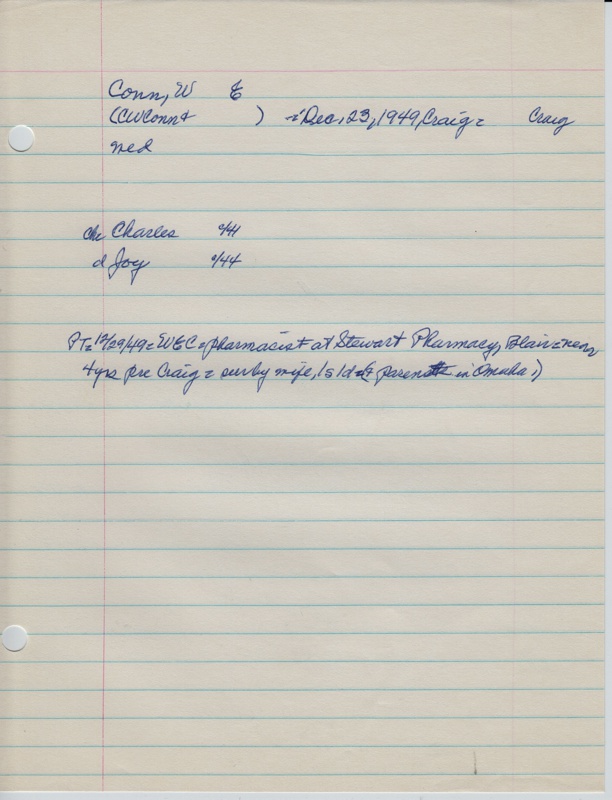 Conn, W E
(CWConn& ) -Dec, 23, 1949, Craig= Craig
med
ch Charles c/41
d Joy c/44
PT= 12/29/49= WEC= pharmacist at Stewart Pharmacy, Blair=
4yrs prev Craig= survby wife, 1s 1d & parents in Omaha.)